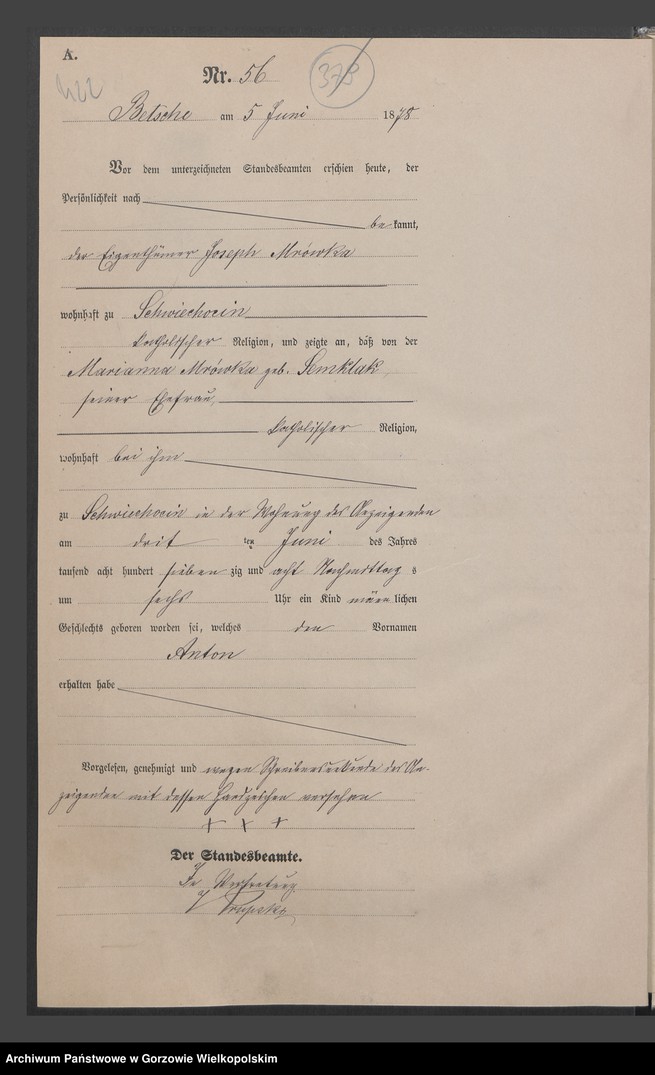 A.
Nr. 56
378
422
Betsche am 5 Juni 1878
Vor dem unterzeichneten Standesbeamten erschien heute, der
Persönlichkeit nach
be kannt,
der Eigenthümer Joseph Mrówka
wohnhaft zu Schwiechocin
katholischer Religion, und zeigte an, daß von der
Marianna Mrówka geb. Semklak
seiner Ehefrau,
katholischer Religion,
wohnhaft bei ihm
zu Schwiechocin in der Wohnung des Anzeigenden
am drit ten Juni des Jahres
tausend acht hundert sieben zig und acht Nachmittag s
um sechs Uhr ein Kind männ lichen
Geschlechts geboren worden sei, welches den Vornamen
Anton
erhalten habe
Vorgelesen, genehmigt und wegen Schreibensunkunde des An-
zeigenden mit dessen Handzeichen versehen
+ + +
Der Standesbeamte.
In Vertretung